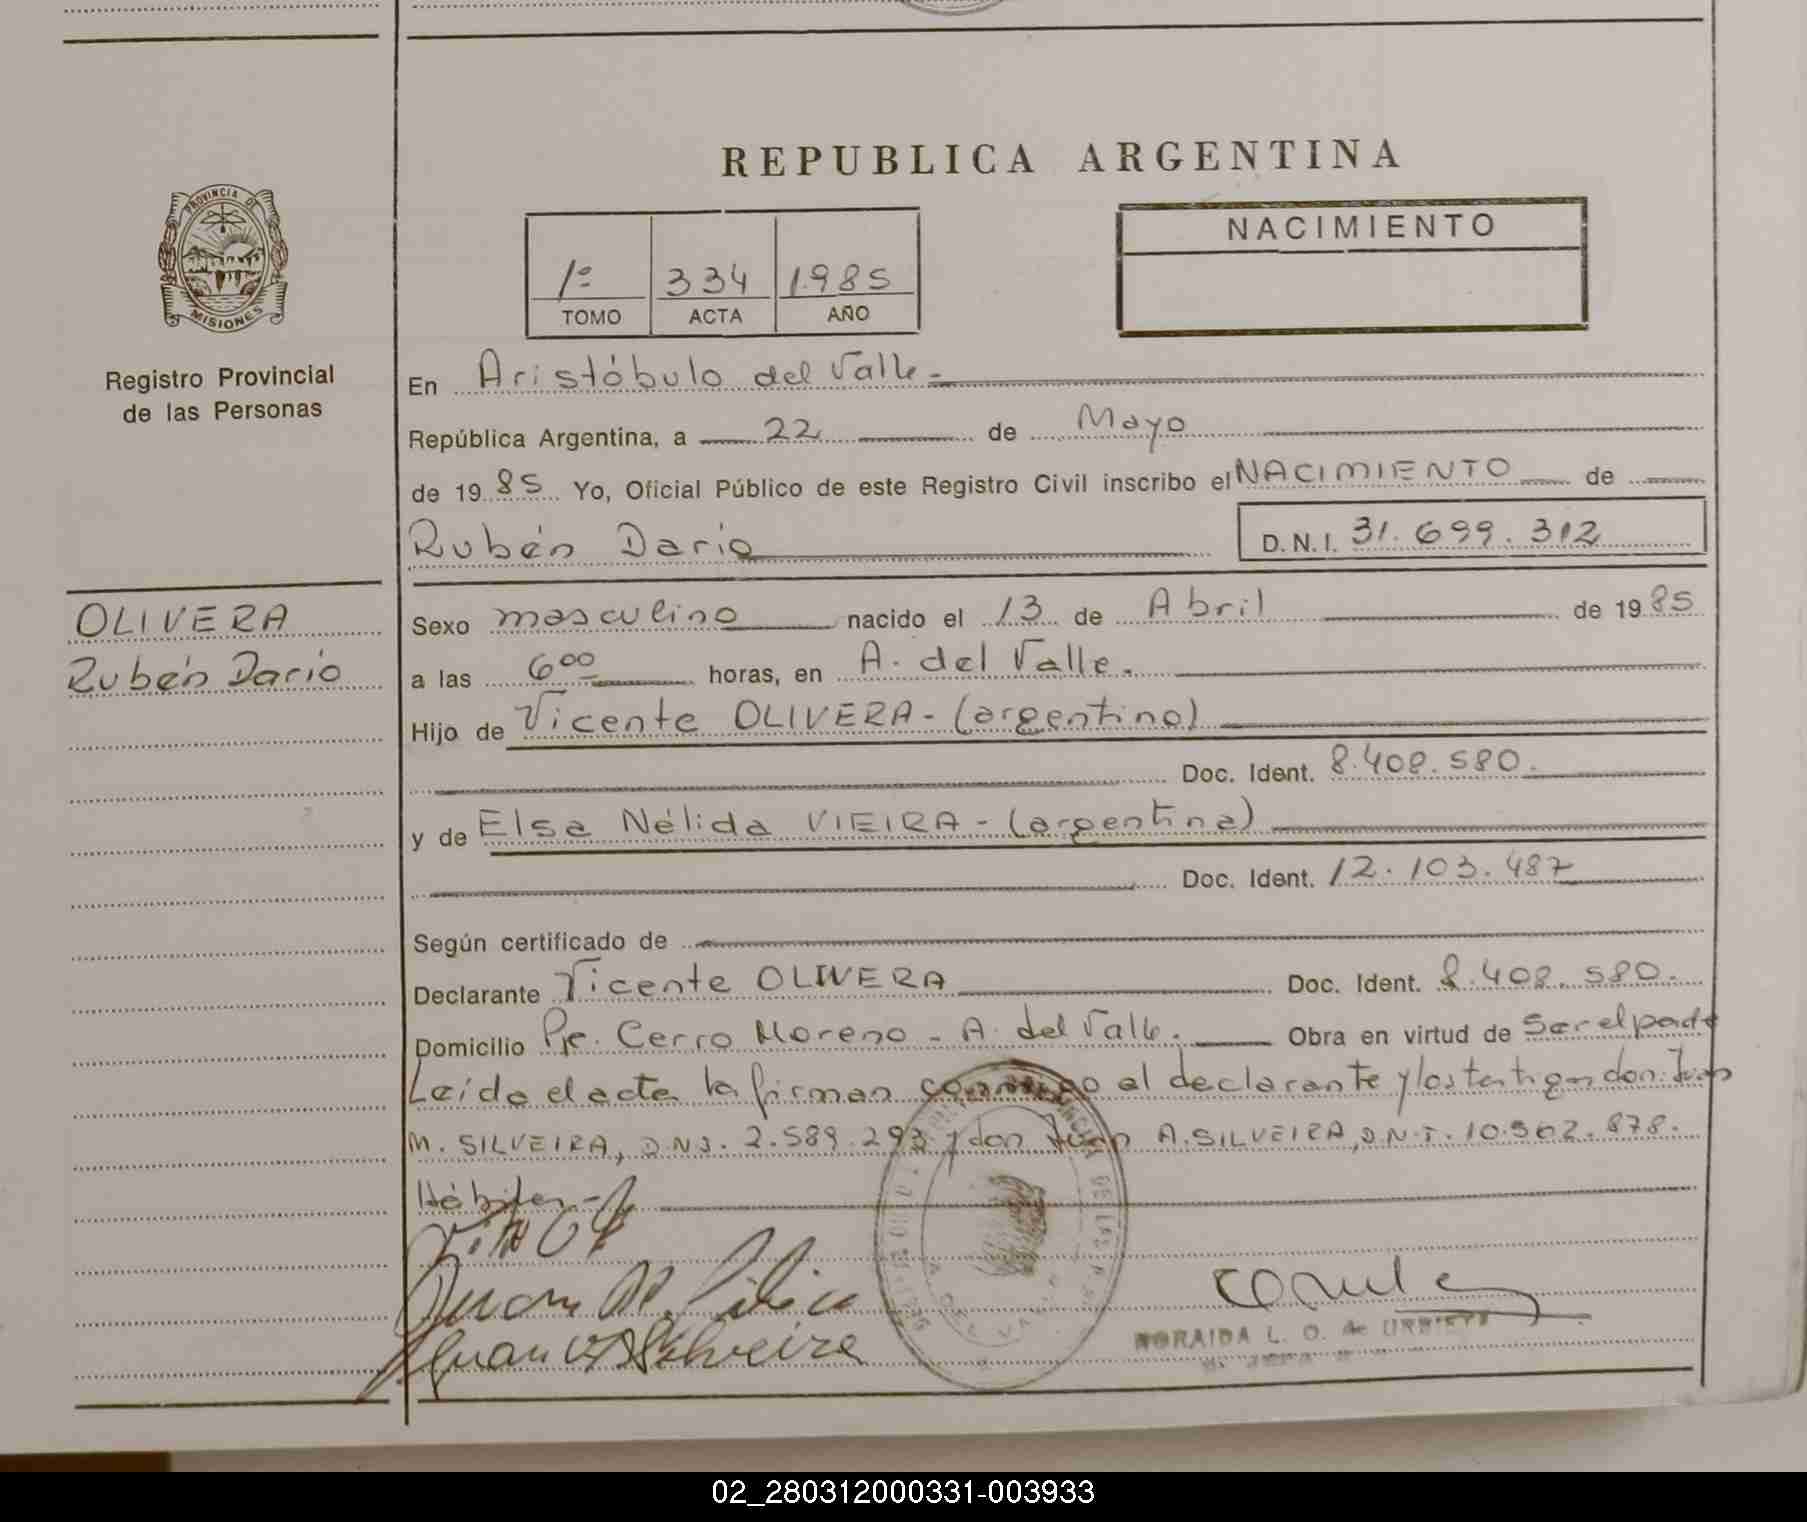 REPUBLICA ARGENTINA
PROVINCIA DE
MISIONES
Registro Provincial
de las Personas
1º 334 1985
TOMO ACTA AÑO
NACIMIENTO
En Aristóbulo del Valle.-
República Argentina, a 22 de Mayo
de 1985 Yo, Oficial Público de este Registro Civil inscribo el NACIMIENTO de
Rubén Dario D.N.I. 31.699.312
OLIVERA
Rubén Dario
Sexo masculino nacido el 13 de Abril de 1985
a las 6⁰⁰ horas, en A. del Valle.
Hijo de Vicente OLIVERA - (argentino)
Doc. Ident. 8.408.580.
y de Elsa Nélida VIEIRA - (argentina)
Doc. Ident. 12.103.487
Según certificado de
Declarante Vicente OLIVERA Doc. Ident. 8.408.580.
Domicilio Pje. Cerro Moreno - A. del Valle. Obra en virtud de Ser el padre
Leída el acta la firman conmigo el declarante y los testigos don: Juan
M. SILVEIRA, D.N.I. 2.589.293 y don Juan A. SILVEIRA, D.N.I. 10.502.878.
Hábiles-
Juan M.
Juan A Silveira
NORAIDA L. O. de URBIETA
02_280312000331-003933